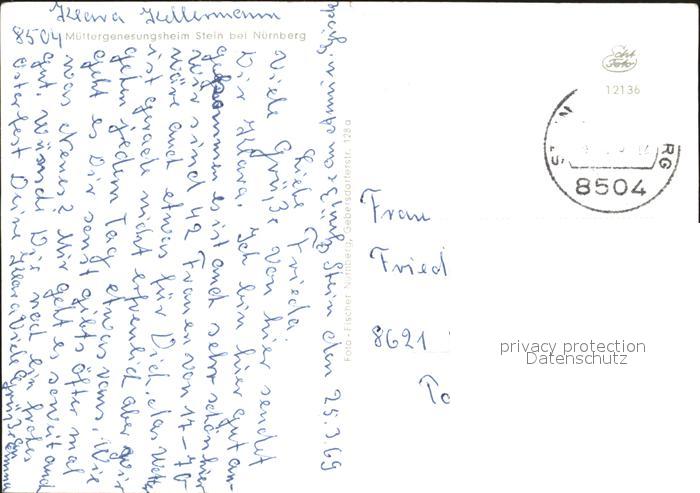 Klara Kellermann
8504 Müttergenesungsheim Stein bei Nürnberg
Stein den 25.3.69
Liebe Frieda
Viele Grüße von hier sendet
Dir Klara. Ich bin hier gut an-
gekommen es ist auch sehr schön hier
wir sind 42 Frauen von 17-70
wäre auch etwas für Dich. das Wetter
ist gerade nicht erfreulich aber wir
gehen jedem Tag etwas raus. Wie
geht es Dir sonst gibts öfter mal
was neues? Mir geht es soweit auch
gut. Wünsche Dir noch ein frohes
Osterfest Deine Klara
Foto-Fischer Nürnberg, Gebersdorferstr. 128a
Echt
Foto
12136
8504
RG
Frau
Fried
8621
privacy protection
Datenschutz